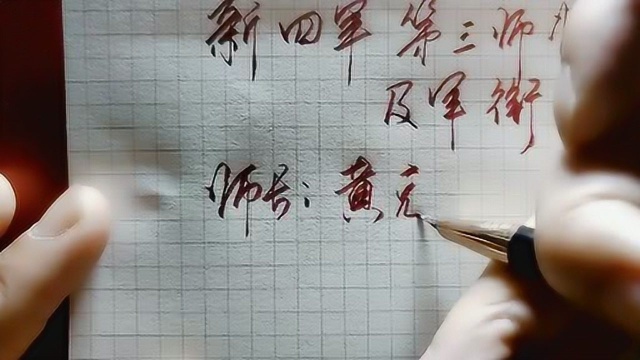 新四军第三师
及军衔
师长:黄克